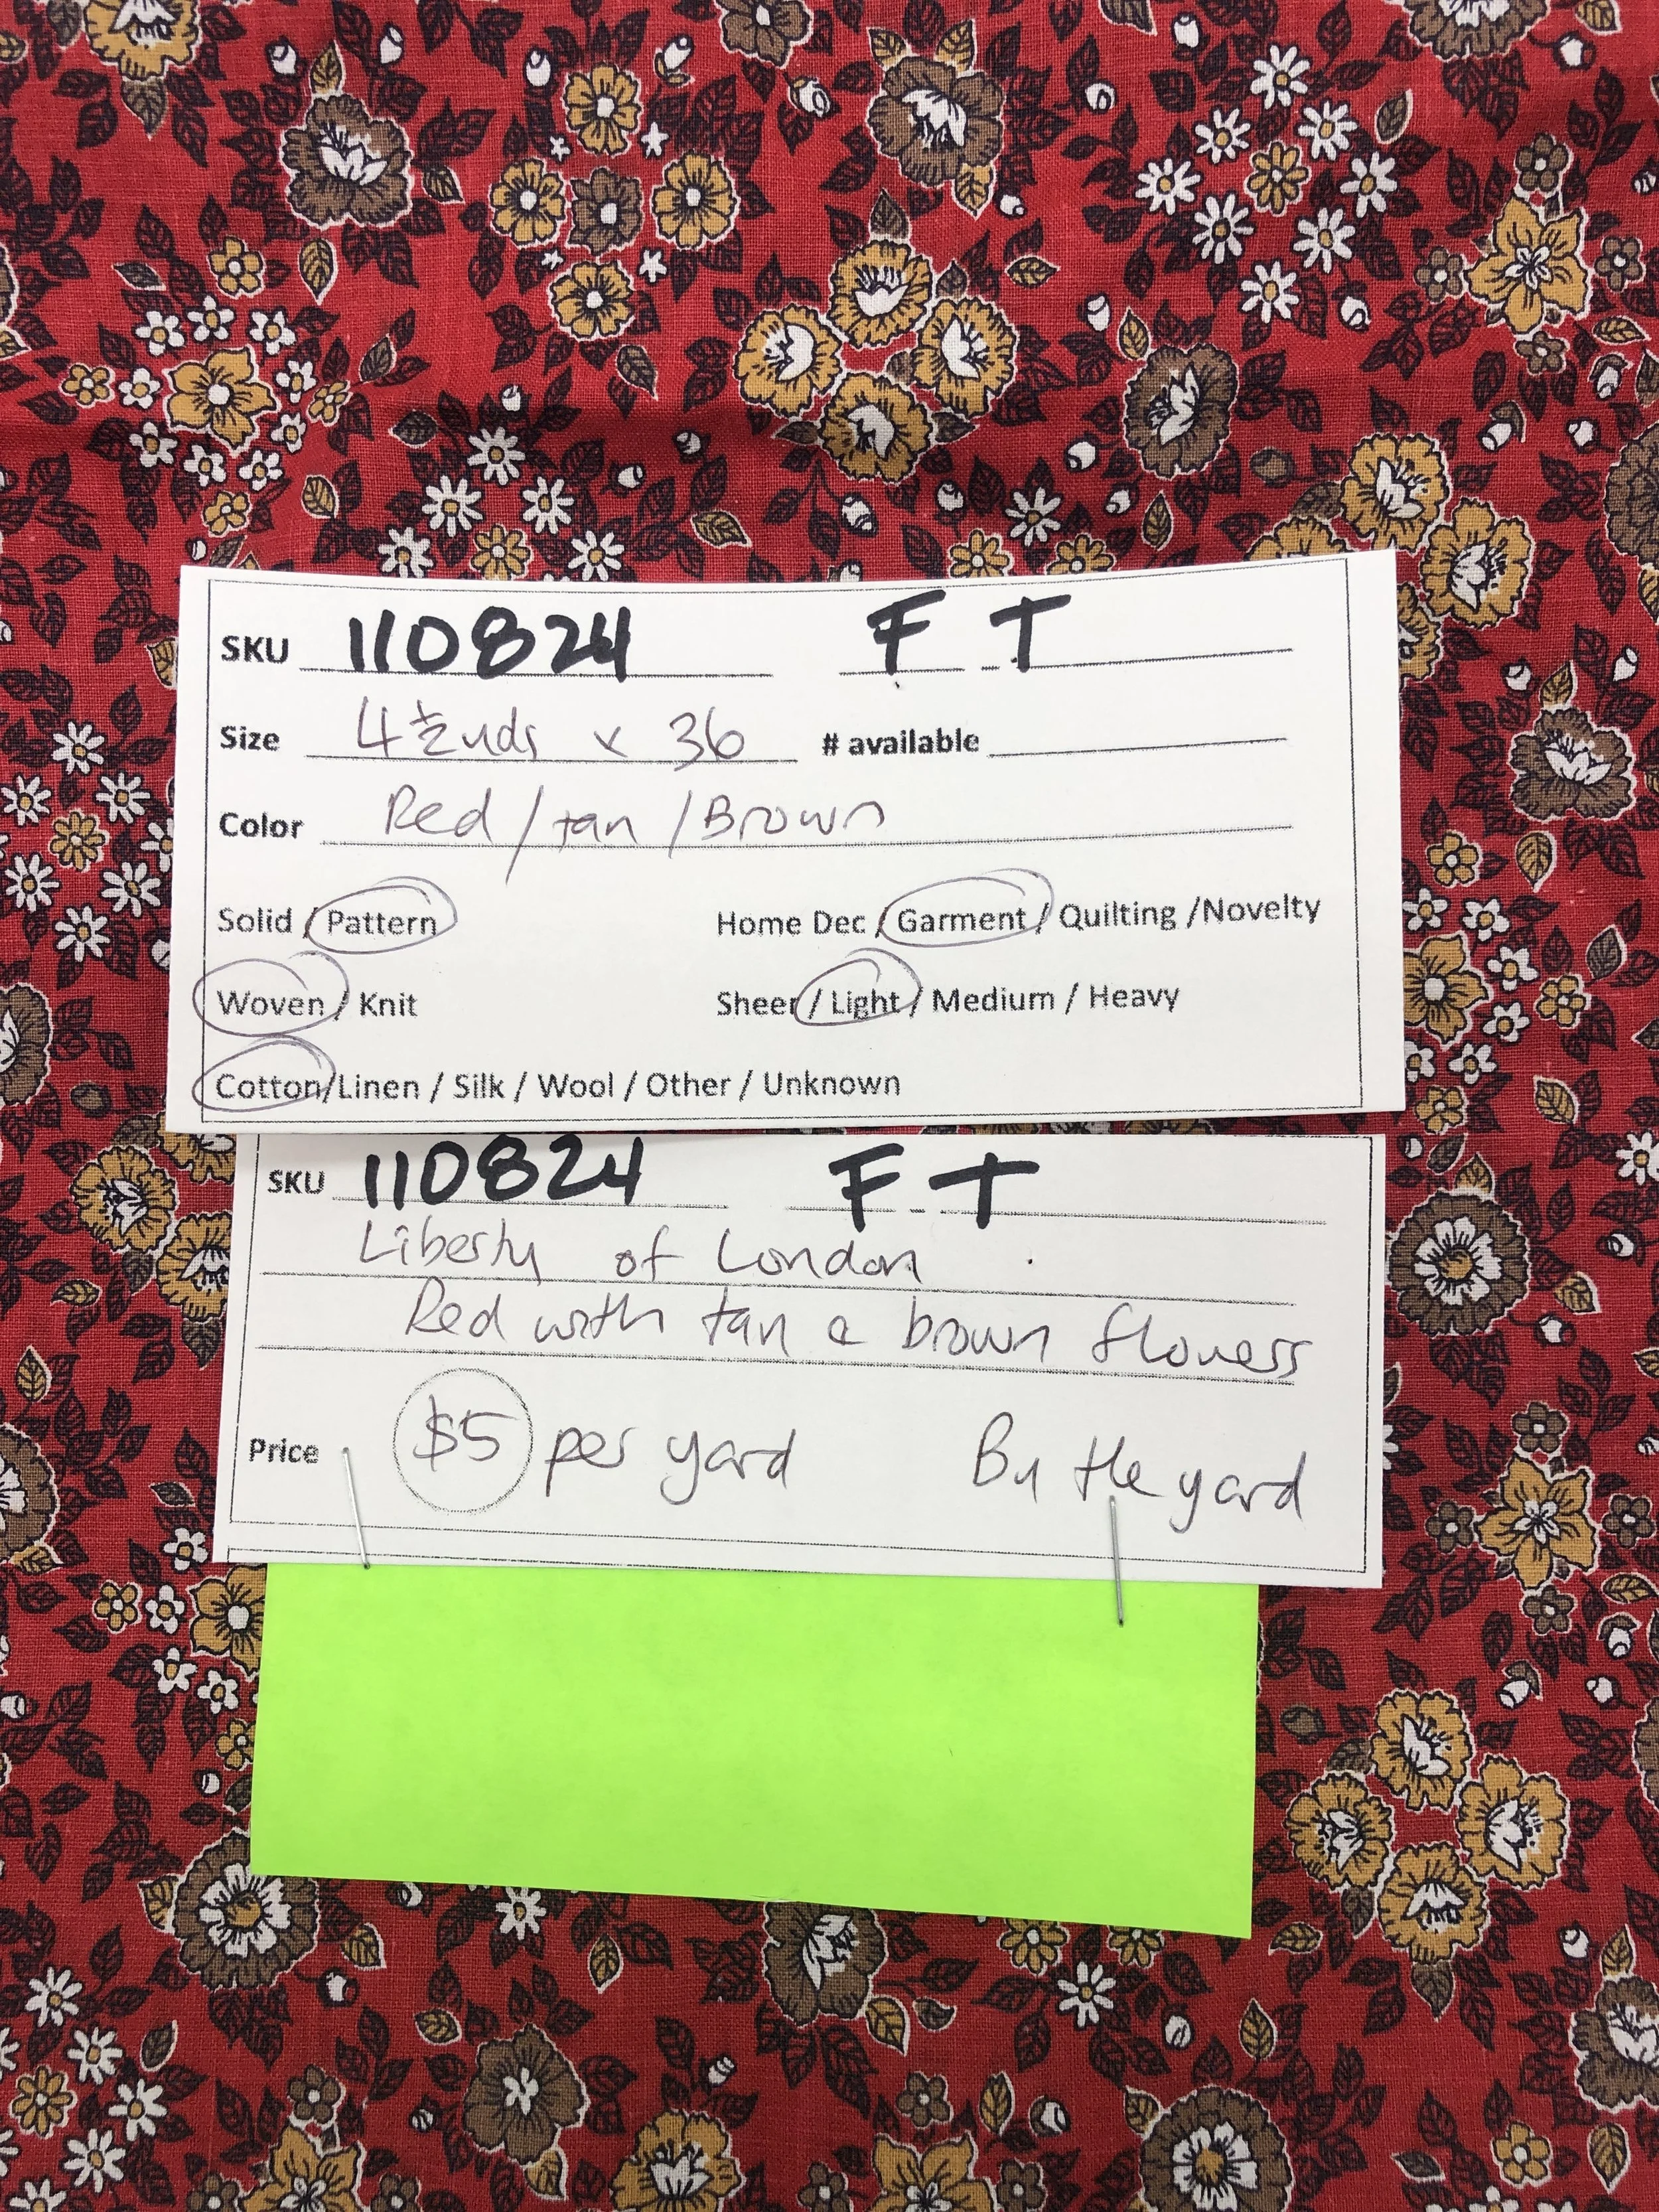 SKU 110824 F T
Size 4 ½ yds x 36 # available
Color Red / tan / Brown
Solid / Pattern Home Dec / Garment / Quilting /Novelty
Woven / Knit Sheer / Light / Medium / Heavy
Cotton/Linen / Silk / Wool / Other / Unknown
SKU 110824 F T
Liberty of London
Red with tan & brown flowers
Price $5 per yard By the yard